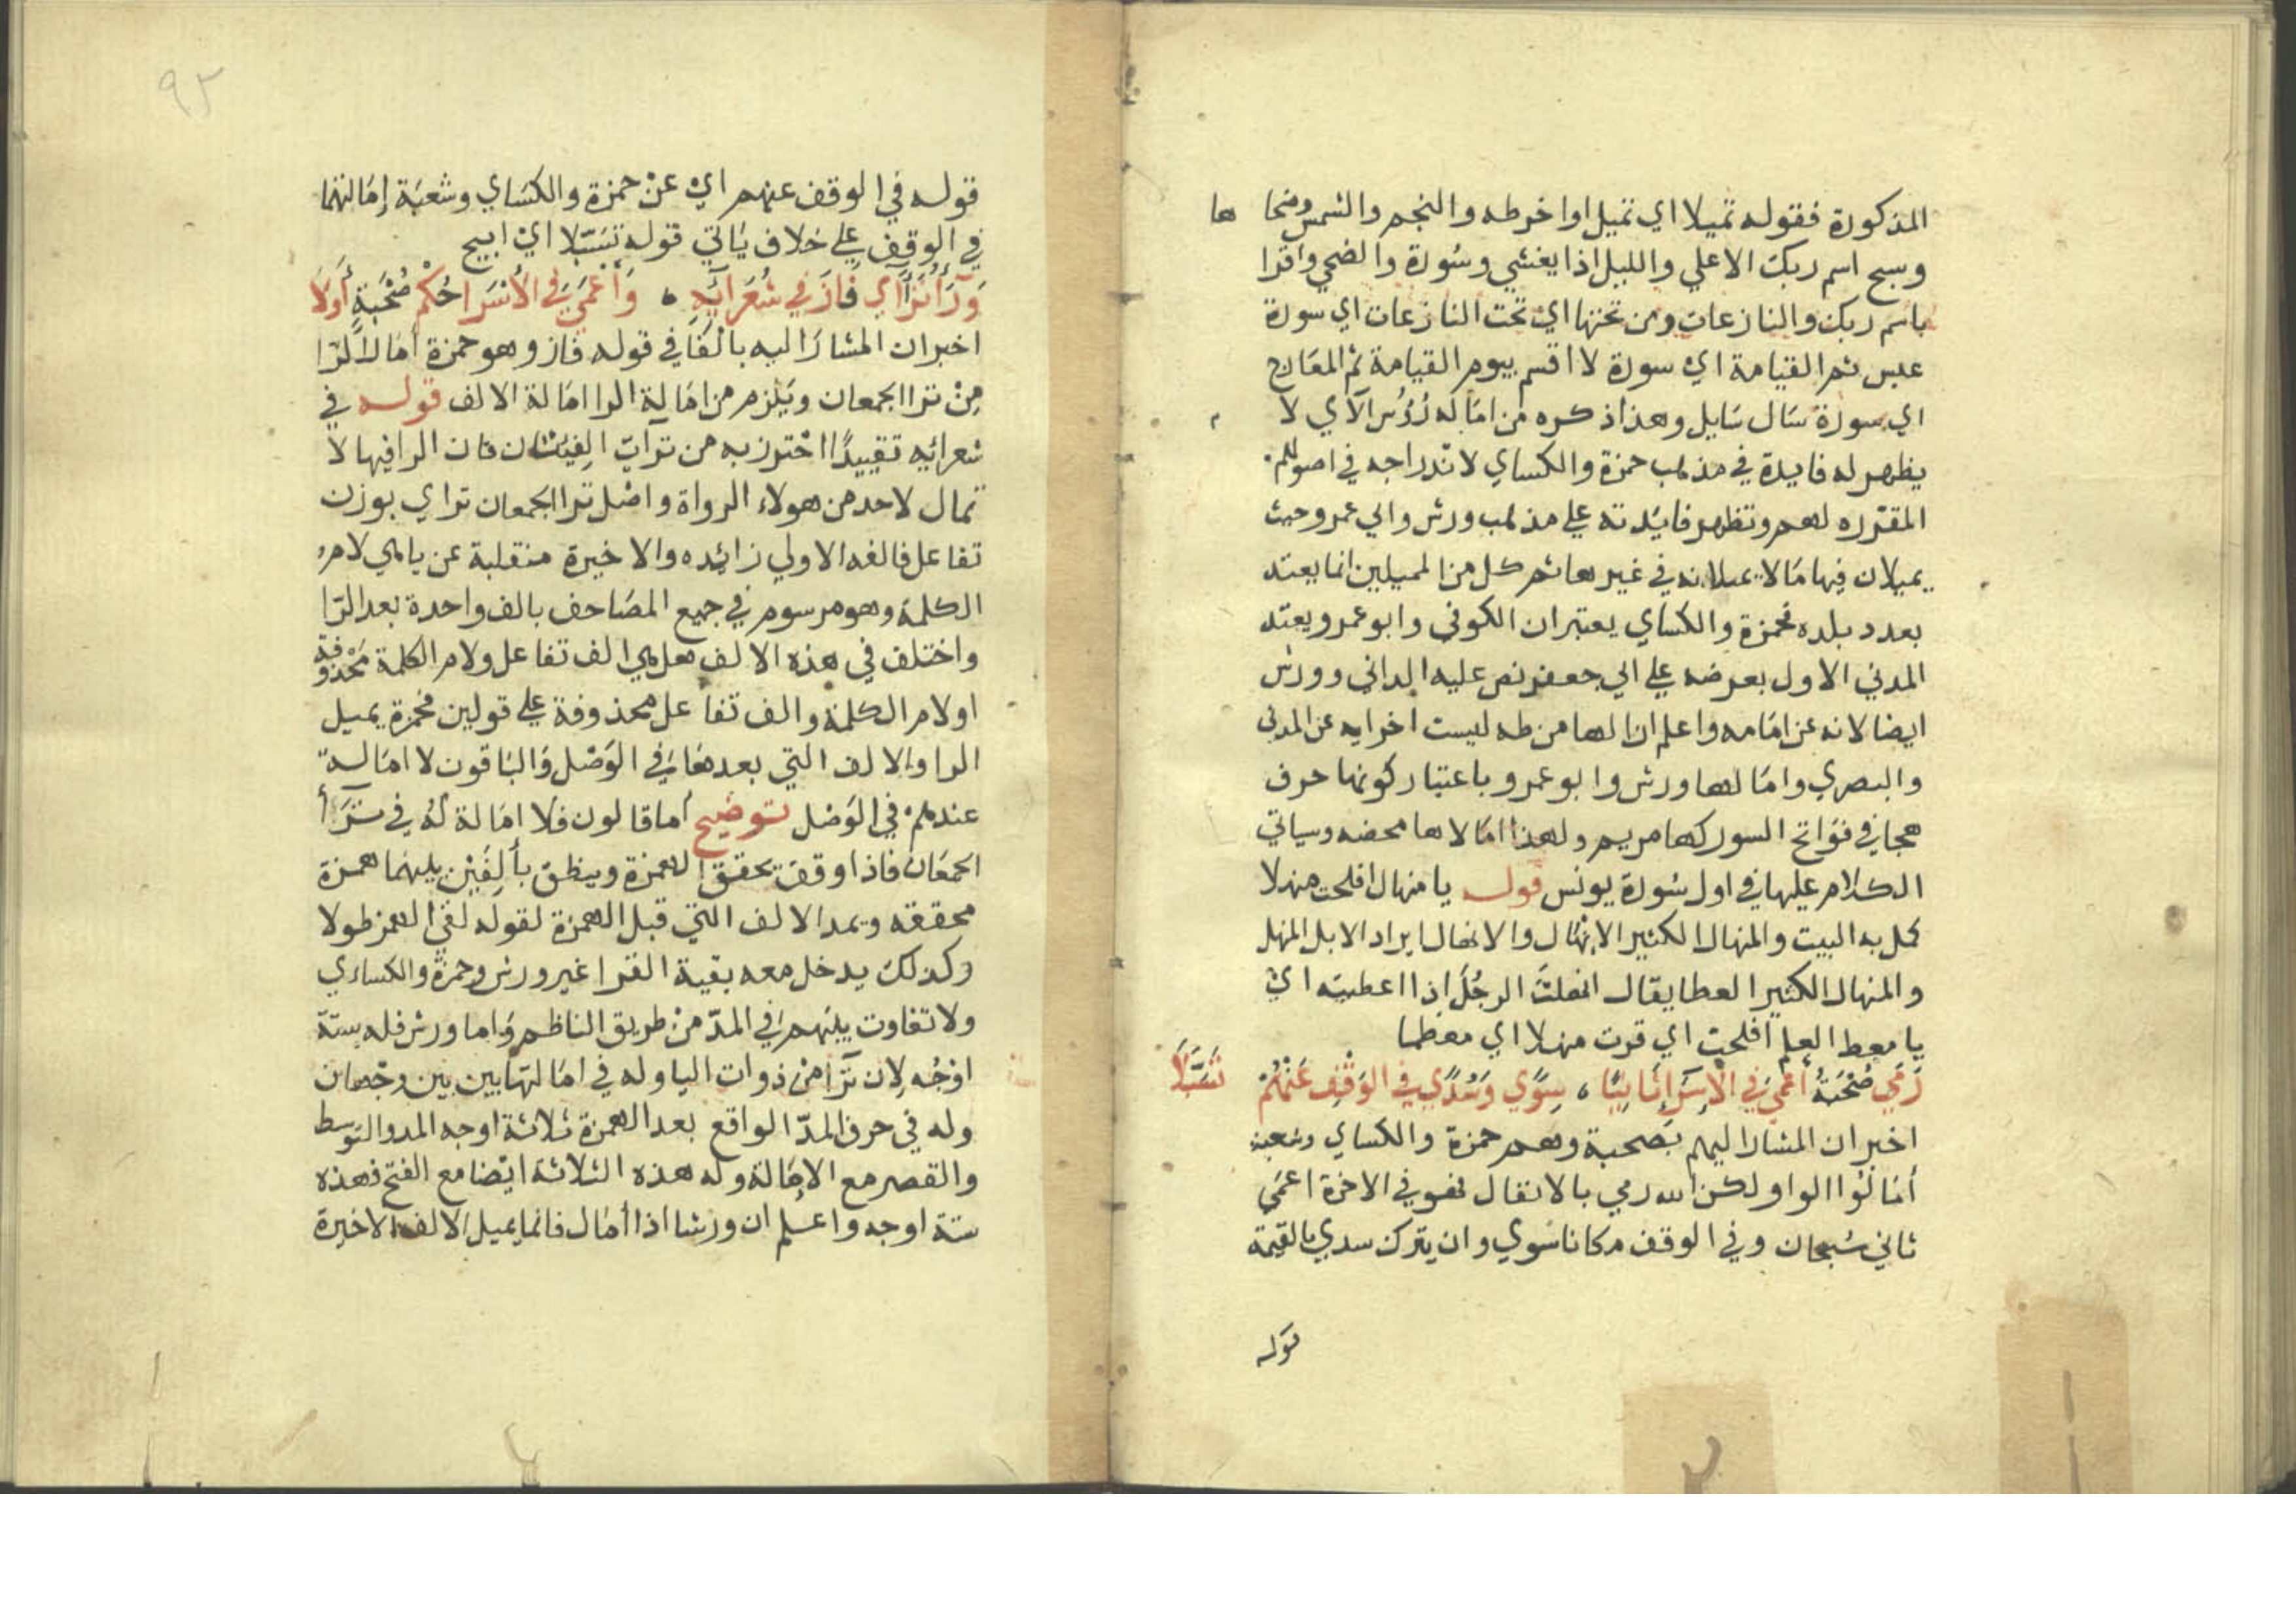 المذكورة فقوله تميلا اي تميل اواخر طه والنجم والشمس وضحا ها
وسبح اسم ربك الاعلي والليل اذا يغشي وسورة والضحي واقرا
باسم ربك والنازعات ومن تحتها اي تحت النازعات اي سورة
عبس ثم القيامة اي سورة لا اقسم بيوم القيامة ثم المعارج
اي سورة سال سايل وهذا ذكره من امالة رؤس الآي لا
يظهر له فايدة في مذهب حمزة والكساي لاندراجه في اصولهم
المقرره لهم وتظهر فايدته علي مذهب ورش وابي عمرو حيث
يميلان فيها مالا يميلانه في غيرها ثم كل من المميلين انما يعتد
بعدد بلده فحمزة والكساي يعتبران الكوفي وابو عمرو يعتد
المدني الاول بعرضه علي ابي جعفر نص عليه الداني وورش
ايضا لانه عن امامه واعلم ان لها من طه ليست اخر ايه عن المدني
والبصري وامالها ورش وابو عمرو باعتبار كونها حرف
هجا في فواتح السور كها مريم ولهذا امالا ها محضه وسياتي
الكلام عليها في اول سورة يونس قوله يا منهال افلحت منهلا
كمل به البيت والمنهال الكثير الانهال والانهال ايراد الابل المنهل
والمنهال الكثير العطا يقال انهلت الرجل اذا اعطيته اي
يا معط العلم افلحت اي قرت منهلا اي معطما
رَمي صُحْبَةٌ أعْمَي في الاِسْرَاءِ ثَانِيًا ، سِوًي وَسُدًي في الوَقْفِ عَنْهُمْ تَسَبَّلَا
اخبر ان المشار اليهم بصحبة وهم حمزة والكساي وشعبة
أمالوا الواو لكن الله رمي بالانفال فهو في الاخرة اعمي
ثاني سبحان وفي الوقف مكانا سوي وان يترك سدي بالقيمة
قوله
٩٣
قوله في الوقف عنهم اي عن حمزة والكساي وشعبة إمالتهما
في الوقف علي خلاف ياتي قوله تسبلا اي ابيح
وَرَاءُ تَرَاءَي فَازَ في شُعَرَائِهِ ، وَأَعْمَي في الاُسْرَا حُكْمُ صُحْبَةٍ أَوَّلَا
اخبر ان المشار اليه بالفا في قوله فاز وهو حمزة أمال الرا
من ترا الجمعان ويلزم من امالة الرا امالة الالف قوله في
شعرائه تقييدا احترز به من ترآت الفيتان فان الرا فيها لا
تمال لاحد من هولاء الرواة واصل ترا الجمعان تراي بوزن
تفاعل فالفه الاولي زائده والاخيرة منقلبة عن ياهي لام
الكلمة وهو مرسوم في جميع المصاحف بالف واحدة بعد الرا
واختلف في هذه الالف هل هي الف تفاعل ولام الكلمة محذوفة
اولام الكلمة والف تفاعل محذوفة علي قولين فحمزة يميل
الرا والالف التي بعدها في الوصل والباقون لا امالة
عندهم في الوصل توضيح أما قالون فلا امالة له في ترأ
الجمعان فاذا وقف يحقق الهمزة وينطق بألفين بينهما همزة
محققه ويمد الالف التي قبل الهمزة لقوله لقي الهمز طولا
وكذلك يدخل معه بقية القرا غير ورش وحمزة والكساءي
ولا تفاوت بينهم في المد من طريق الناظم واما ورش فله ستة
اوجه لان ترا من ذوات اليا وله في امالتها بين بين وجهان
وله في حرف المد الواقع بعد الهمزة ثلاثة اوجه المد والتوسط
والقصر مع الامالة وله هذه الثلاثة ايضا مع الفتح فهذه
ستة اوجه واعلم ان ورشا اذا أمال فانما يميل الالف الاخيرة